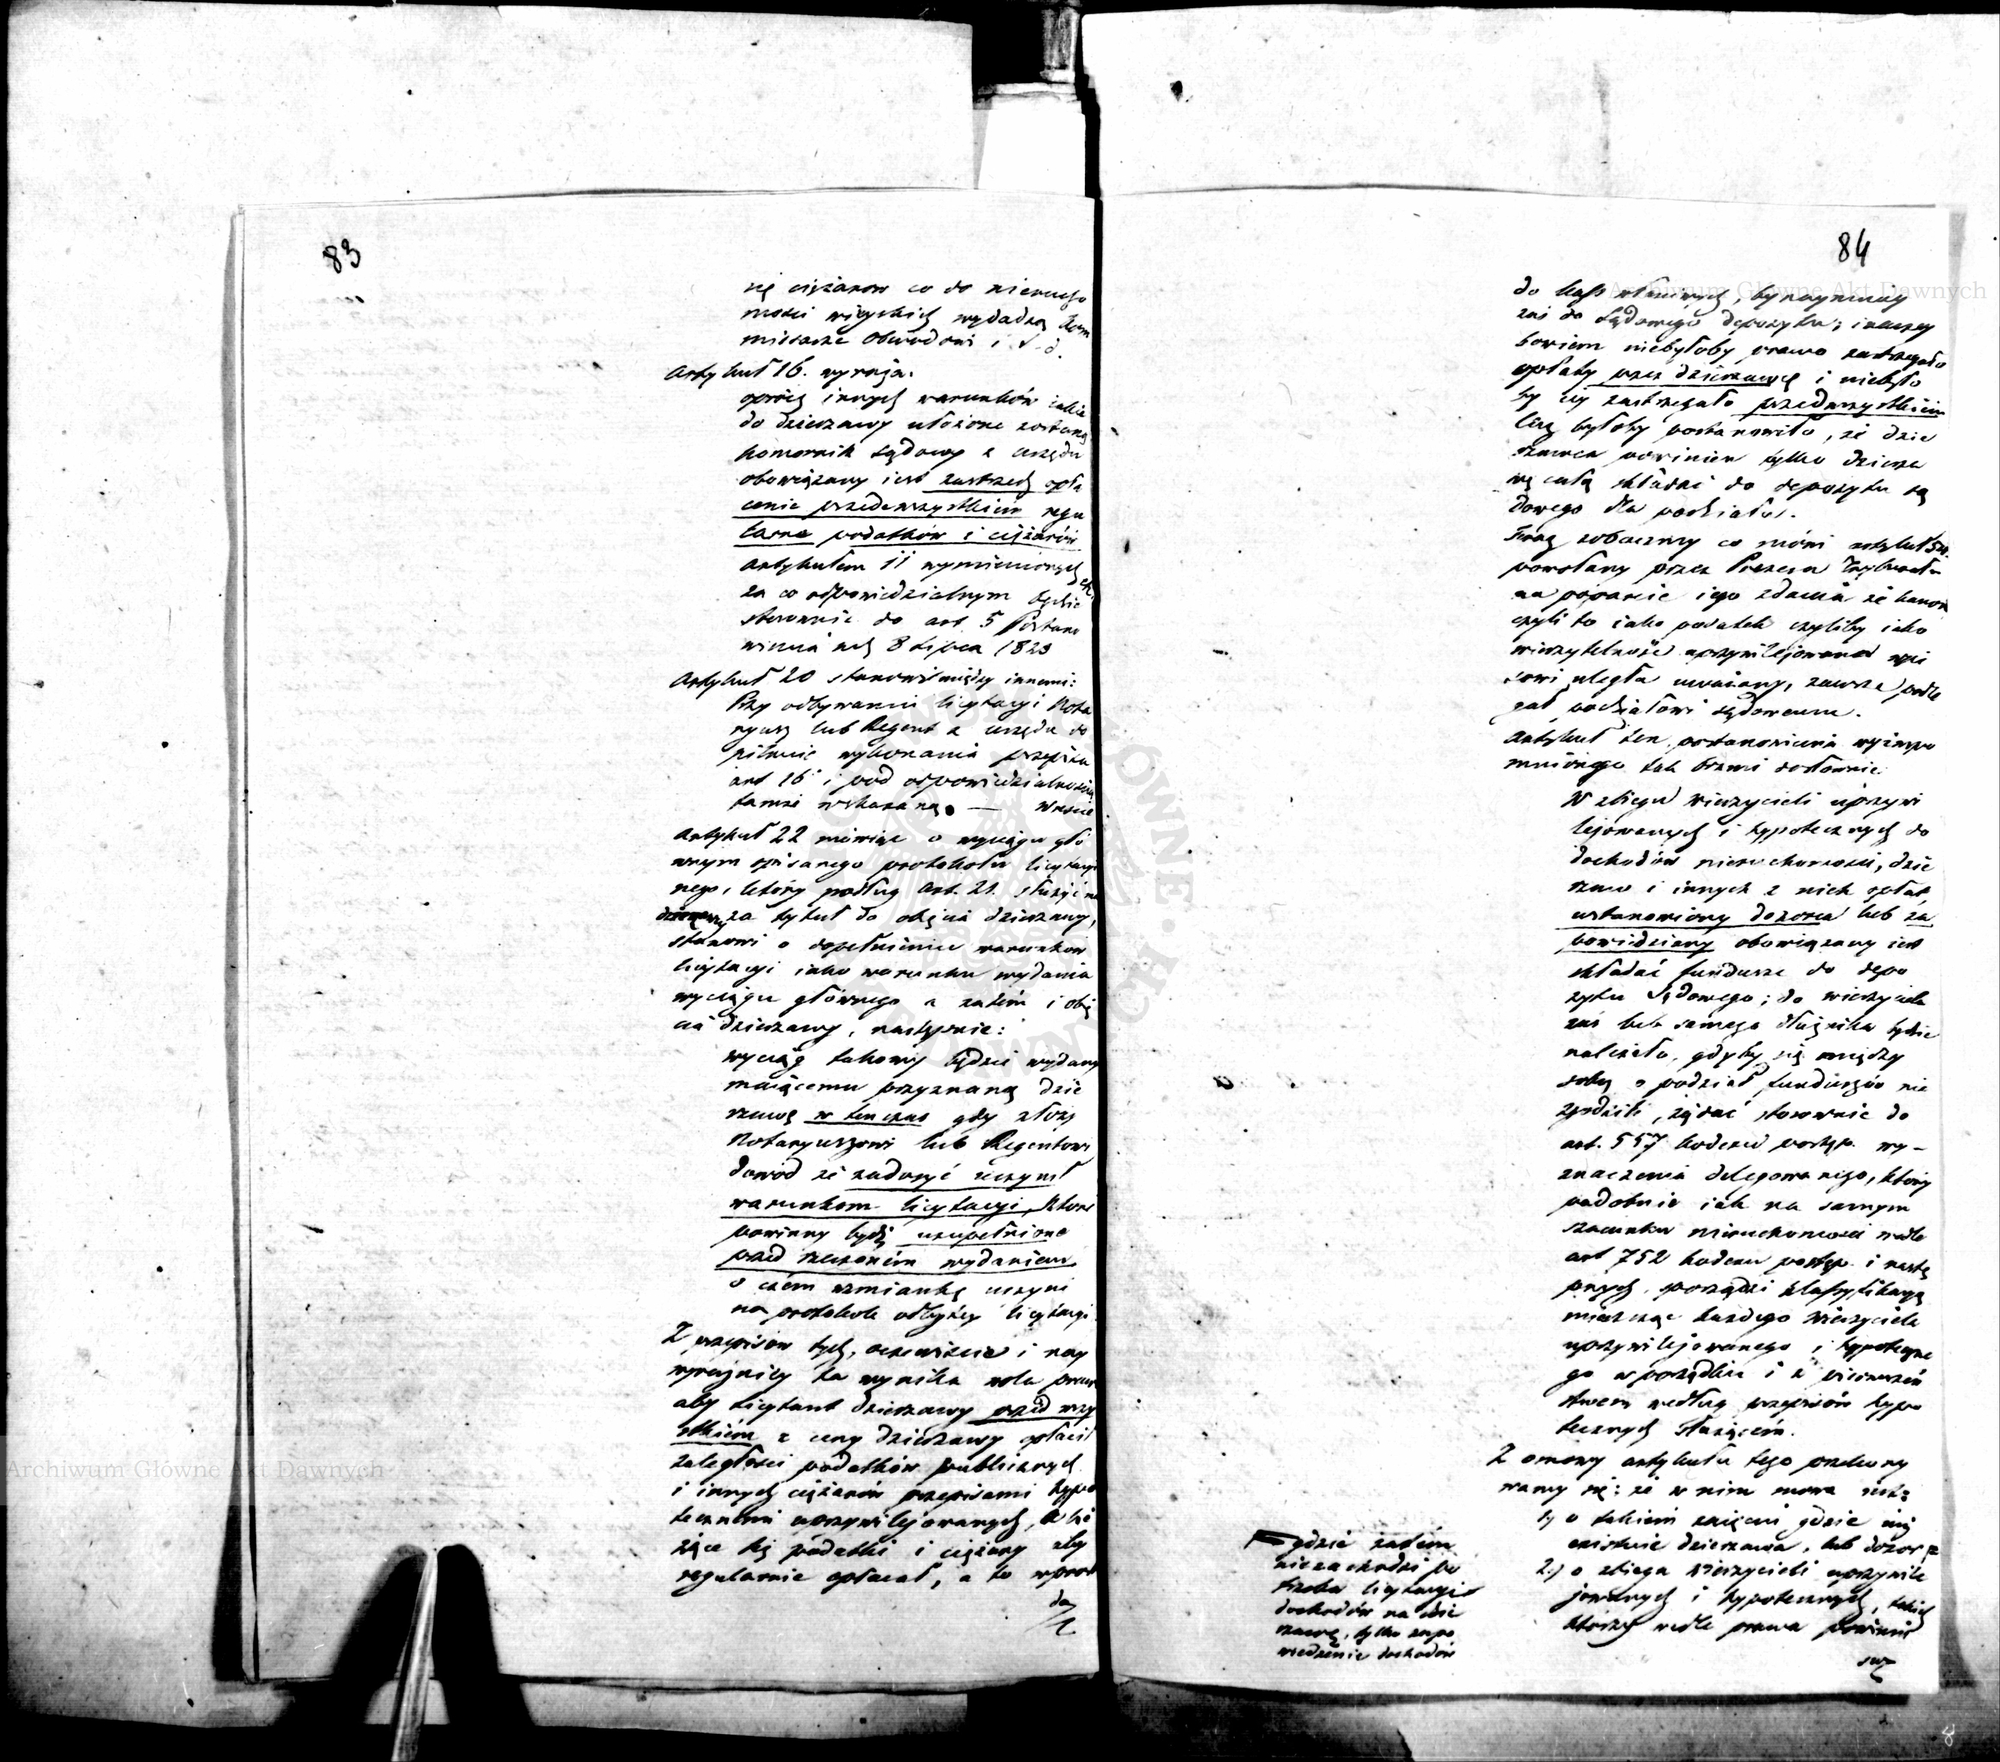 83
się ciężarów co do nierucho
mości wiejskich wydadzą Kom
missarze Obwodowi i t. d.
Artykuł 16. wyraża:
oprócz innych warunków iakie
do dzierzawy ułożone zostaną
komornik sądowy z urzędu
obowiązany iest zastrzedz opła
cenie przedewszystkiem regu
larne podatków i ciężarów
artykułem 11 wymienionych
za co odpowiedzialnym będzie
stosownie do art. 5 Postano
wienia z d. 8 Lipca 1823
Artykuł 20 stanowi między innemi:
Przy odbywaniu licytacyi Nota
ryusz lub Regent z urzędu do
pilnuie wykonania przepisu
art 16 i pod odpowiedzialnością
tamże wskazaną. — Wreście
Artykuł 22 mówiąc o wyciągu głó
wnym spisanego protokołu licytacyi
nego, który podług art. 21. służyć ma
za tytuł do objęcia dzierzawy,
stanowi o dopełnienie warunków
licytacyi iako warunku wydania
wyciągu głównego a zatém i obię
cia dzierzawy, następnie:
wyciąg takowy będzie wydany
maiącemu przyznaną dzie
rzawę w ten czas gdy złoży
Notaryuszowi lub Regentowi
dowód że zadosyć uczynił
warunkom licytacyi, które
powinny bydź uzupełnione
przed rzeczoném wydaniem
o czém wzmiankę uczyni
na protokole odbytéy licytacyi.
Z przepisów tych, oczewiście i nay
wyraźniéy ta wynika wola prawa
aby licytant dzierzawy przed wszy
stkiém z ceny dzierzawy opłacił
zaległości podatków publicznych
i innych ciężarów przepisami hypo
tecznemi uprzywilejowanych, a bie
żące téż podatki i ciężary aby
regularnie opłacał, a to wprost
do
84
do kass właściwych, bynaymniéy
zaś do Sądowego depozytu; inaczéy
bowiem niebyłoby prawo zastrzegało
opłaty przez dzierzawcę i niebyło
by iéy zastrzegało przedewszystkiém
lecz byłoby postanowiło, że dzie
rzawca powinien tylko dzierza
wę całą składać do depozytu są
dowego dla podziału.
Teraz zobaczmy co mówi artykuł 24.
powołany przez Prezesa Trybunału
na poparcie iego zdania że kanon
czyli to iako podatek czyliby iako
wierzytelność uprzywilejowana wpi
sowi uległa uważany, zawsze podle
gał podziałowi sądowemu.
Artykuł ten postanowienia wyżwspo
mnionego tak brzmi dosłownie:
W zbiegu wierzycieli uprzywi
lejowanych i hypotecznych do
dochodów nieruchomości, dzie
rzaw i innych z nich opłat,
ustanowiony dozorca lub za
powiedziany obowiązany iest
składać fundusze do depo
zytu Sądowego; do wierzyciela
zaś lub samego dłużnika będzie
należało, gdyby się między
sobą o podział funduszów nie
zgodzili, żądać stosownie do
art. 557 kodexu postęp. wy-
znaczenia delegowanego, który
podobnie iak na samym
szacunku nieruchomości wedle
art 752 kodexu postęp. i nastę
pnych, sporządzi klassyfikacyą
mieszcząc każdego wierzyciela
uprzywilejowanego i hypoteczne
go w porządku i z pierwszeń
stwem według przepisów hypo
tecznych służącém.
Z osnowy artykułu tego przekony
wamy się: że w nim mowa iest:
1) o takiém zaięciu gdzie iuż
exystuie dzierzawa, lub dozor
2.) o zbiegu wierzycieli uprzywile
jowanych i hypotecznych, takich
którzy wedle prawa powinni
swe
gdzie zatém
niezachodzi po
trzeba licytacyi
dochodów na dzie
rzawę, tylko zapo
wiedzenie dochodów
8
Archiwum Główne Akt Dawnych
Archiwum Główne Akt Dawnych